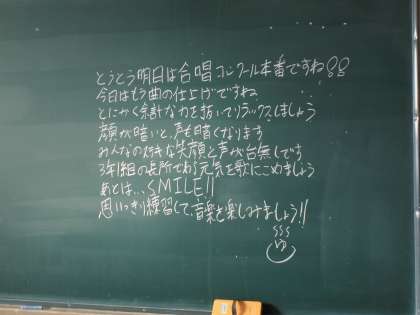 とうとう明日は合唱コンクール本番ですね!!
今日はもう曲の仕上げですね
とにかく余計な力を抜いてリラックスしましょう
顔が暗いと声も暗くなります
みんなの好きな笑顔と声が台無しです
3年1組の長所である元気を歌にこめましょう
あとは...SMILE!!
思いっきり練習して、音楽を楽しみましょう!!